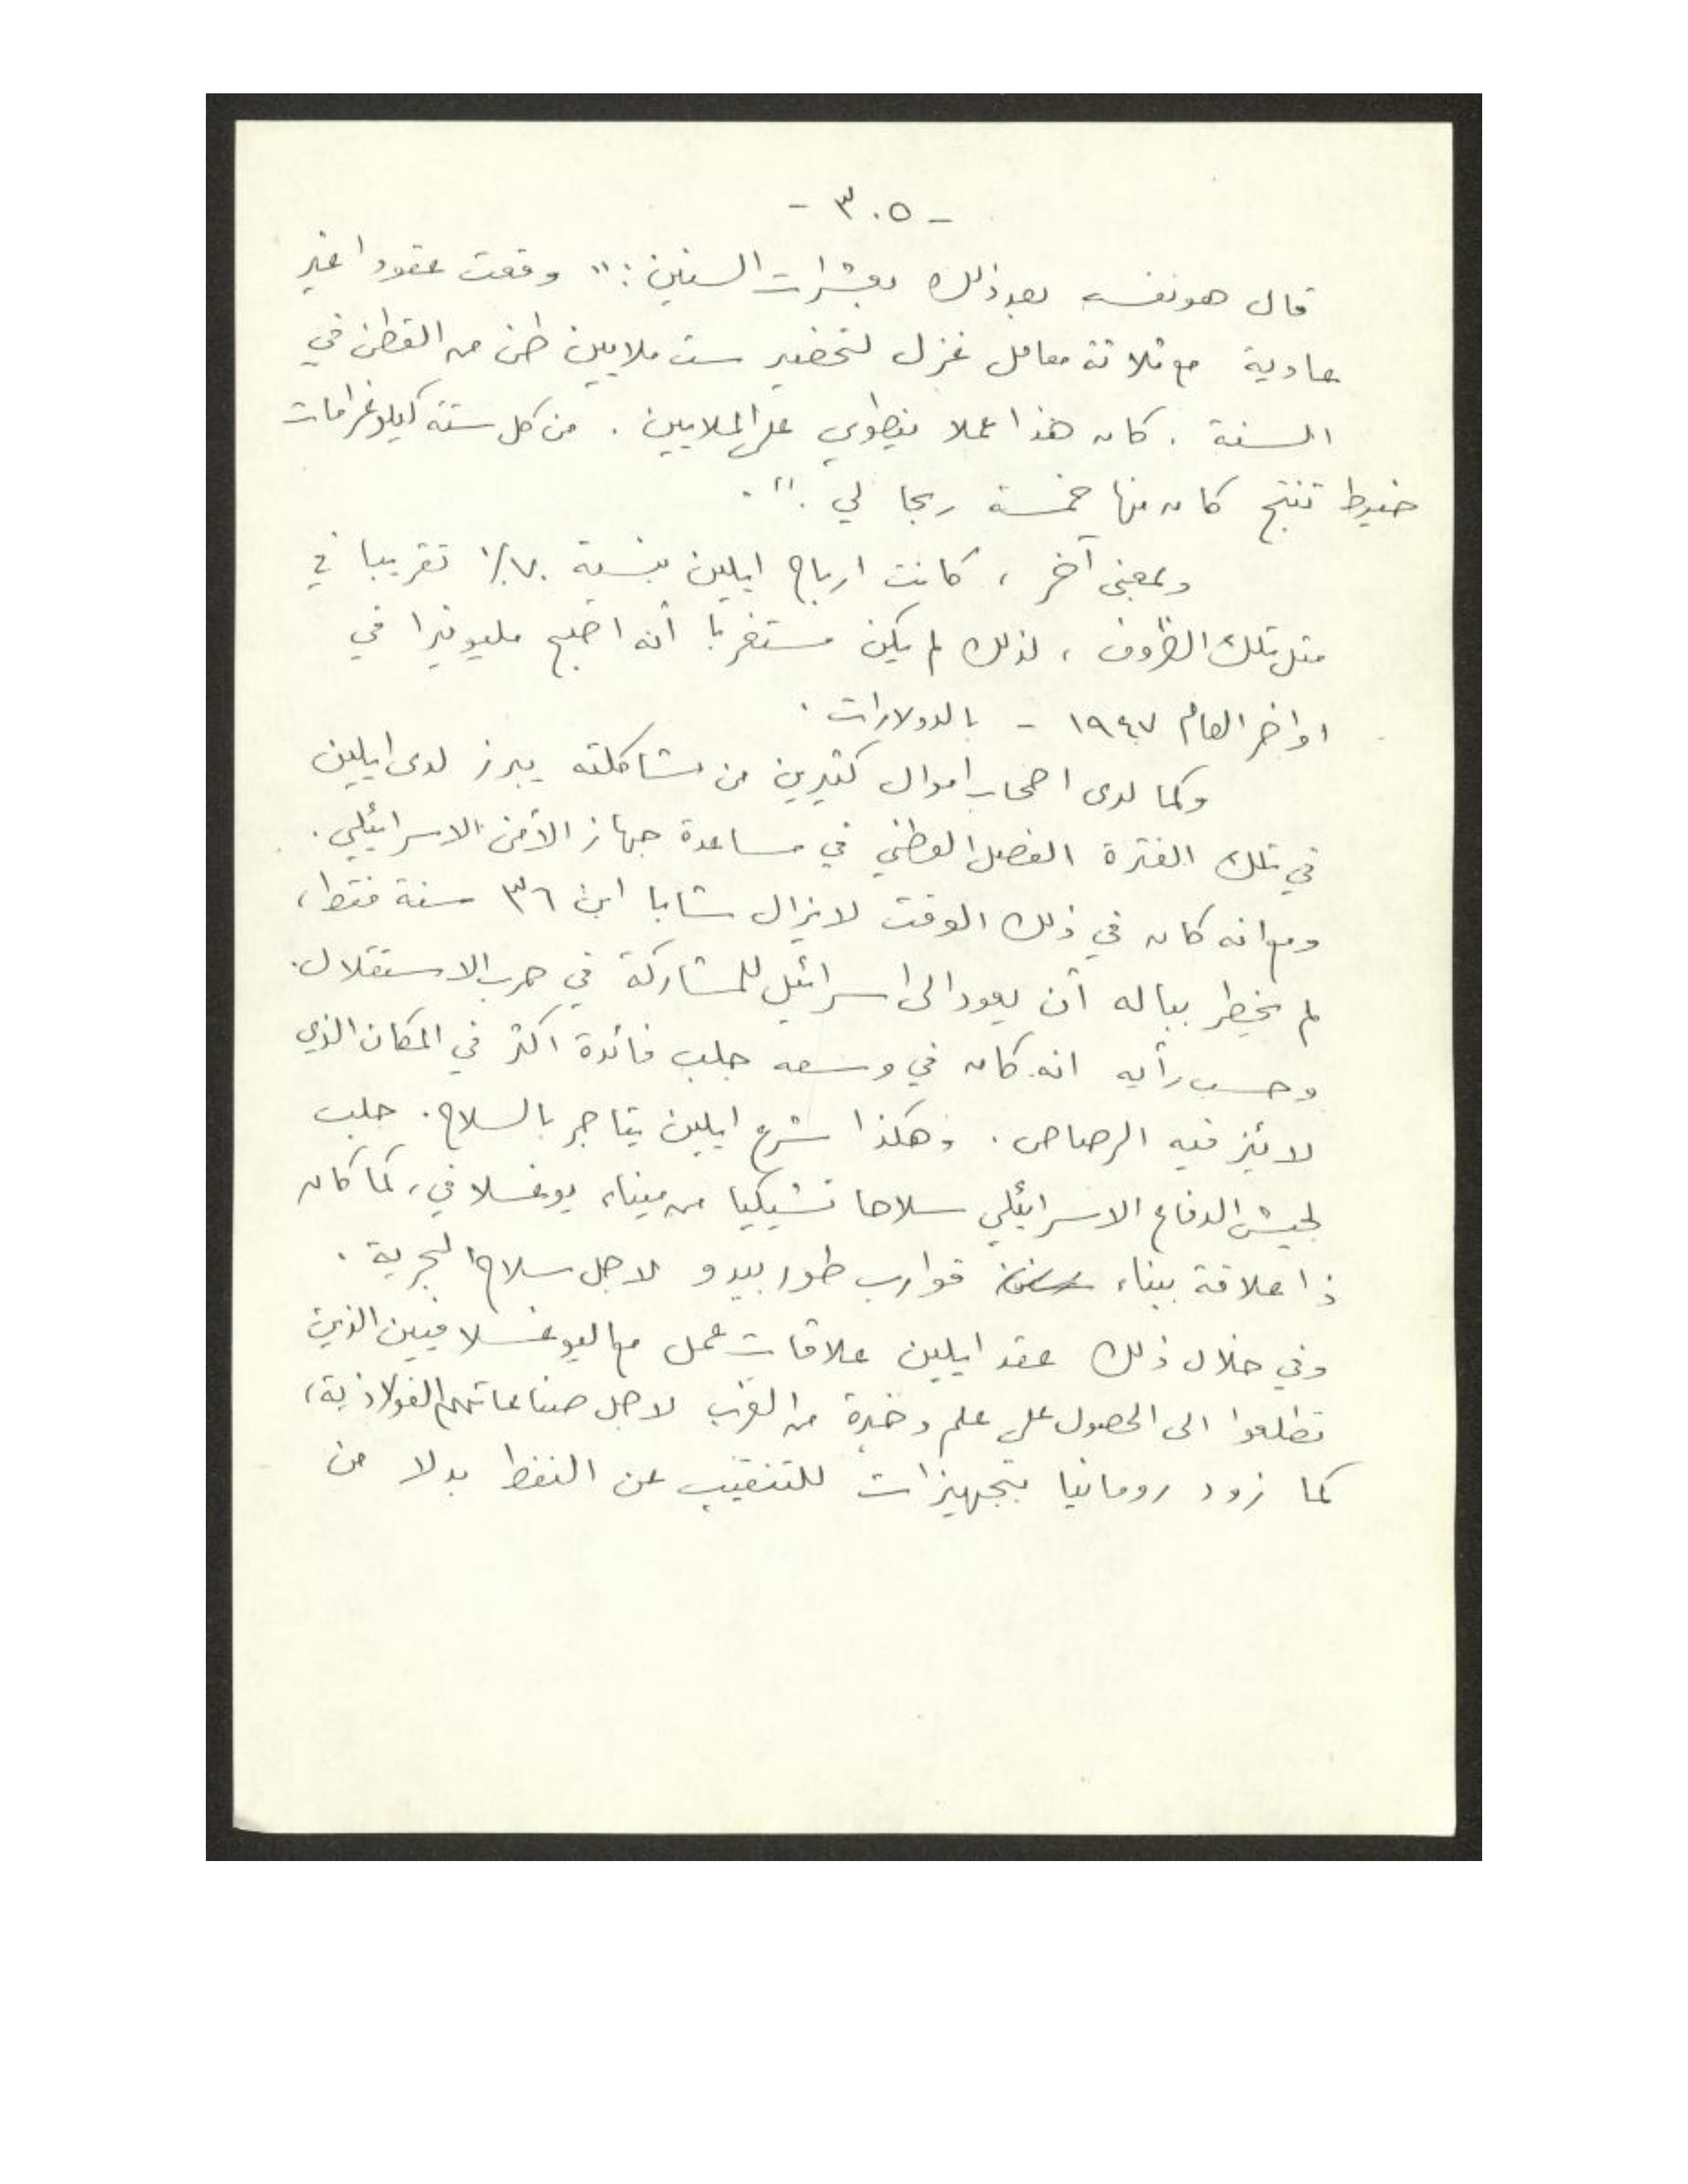 - ٣٠٥ -
قال هو نفسه بعد ذلك بعشرات السنين : " وقعت عقودا غير
عادية مع ثلاثة معامل غزل لتحضير ست ملايين طن من القطن في
السنة . كان هذا عملا ينطوي على الملايين . من كل ستة كيلوغرامات
خيوط تنتج كان منها خمسة ربحا لي . " .
وبمعنى آخر ، كانت ارباح ايلين بنسبة ٧٠٪ تقريبا في
مثل تلك الظروف ، لذلك لم يكن مستغربا أنه اصبح مليونيرا في
اواخر العام ١٩٤٧ - بالدولارات .
وكما لدى اصحاب اموال كثيرين من مشاكلته يبرز لدى ايلين
في تلك الفترة الفصل الوطني في مساعدة جهاز الأمن الاسرائيلي .
ومع انه كان في ذلك الوقت لا يزال شابا ابن ٣٦ سنة فقط ،
لم يخطر بباله أن يعود الى اسرائيل للمشاركة في حرب الاستقلال .
وحسب رأيه انه كان في وسعه جلب فائدة اكثر في المكان الذي
لا يئز فيه الرصاص . وهكذا شرع ايلين يتاجر بالسلاح . جلب
لجيش الدفاع الاسرائيلي سلاحا تشيكيا من ميناء يوغسلافي ، كما كان
ذا علاقة ببناء قوارب طوربيدو لاجل سلاح البحرية .
وفي خلال ذلك عقد ايلين علاقات عمل مع اليوغسلافيين الذين
تطلعوا الى الحصول على علم وخبرة من الغرب لاجل صناعاتهم الفولاذية ،
كما زود رومانيا بتجهيزات للتنقيب عن النفط بدلا من